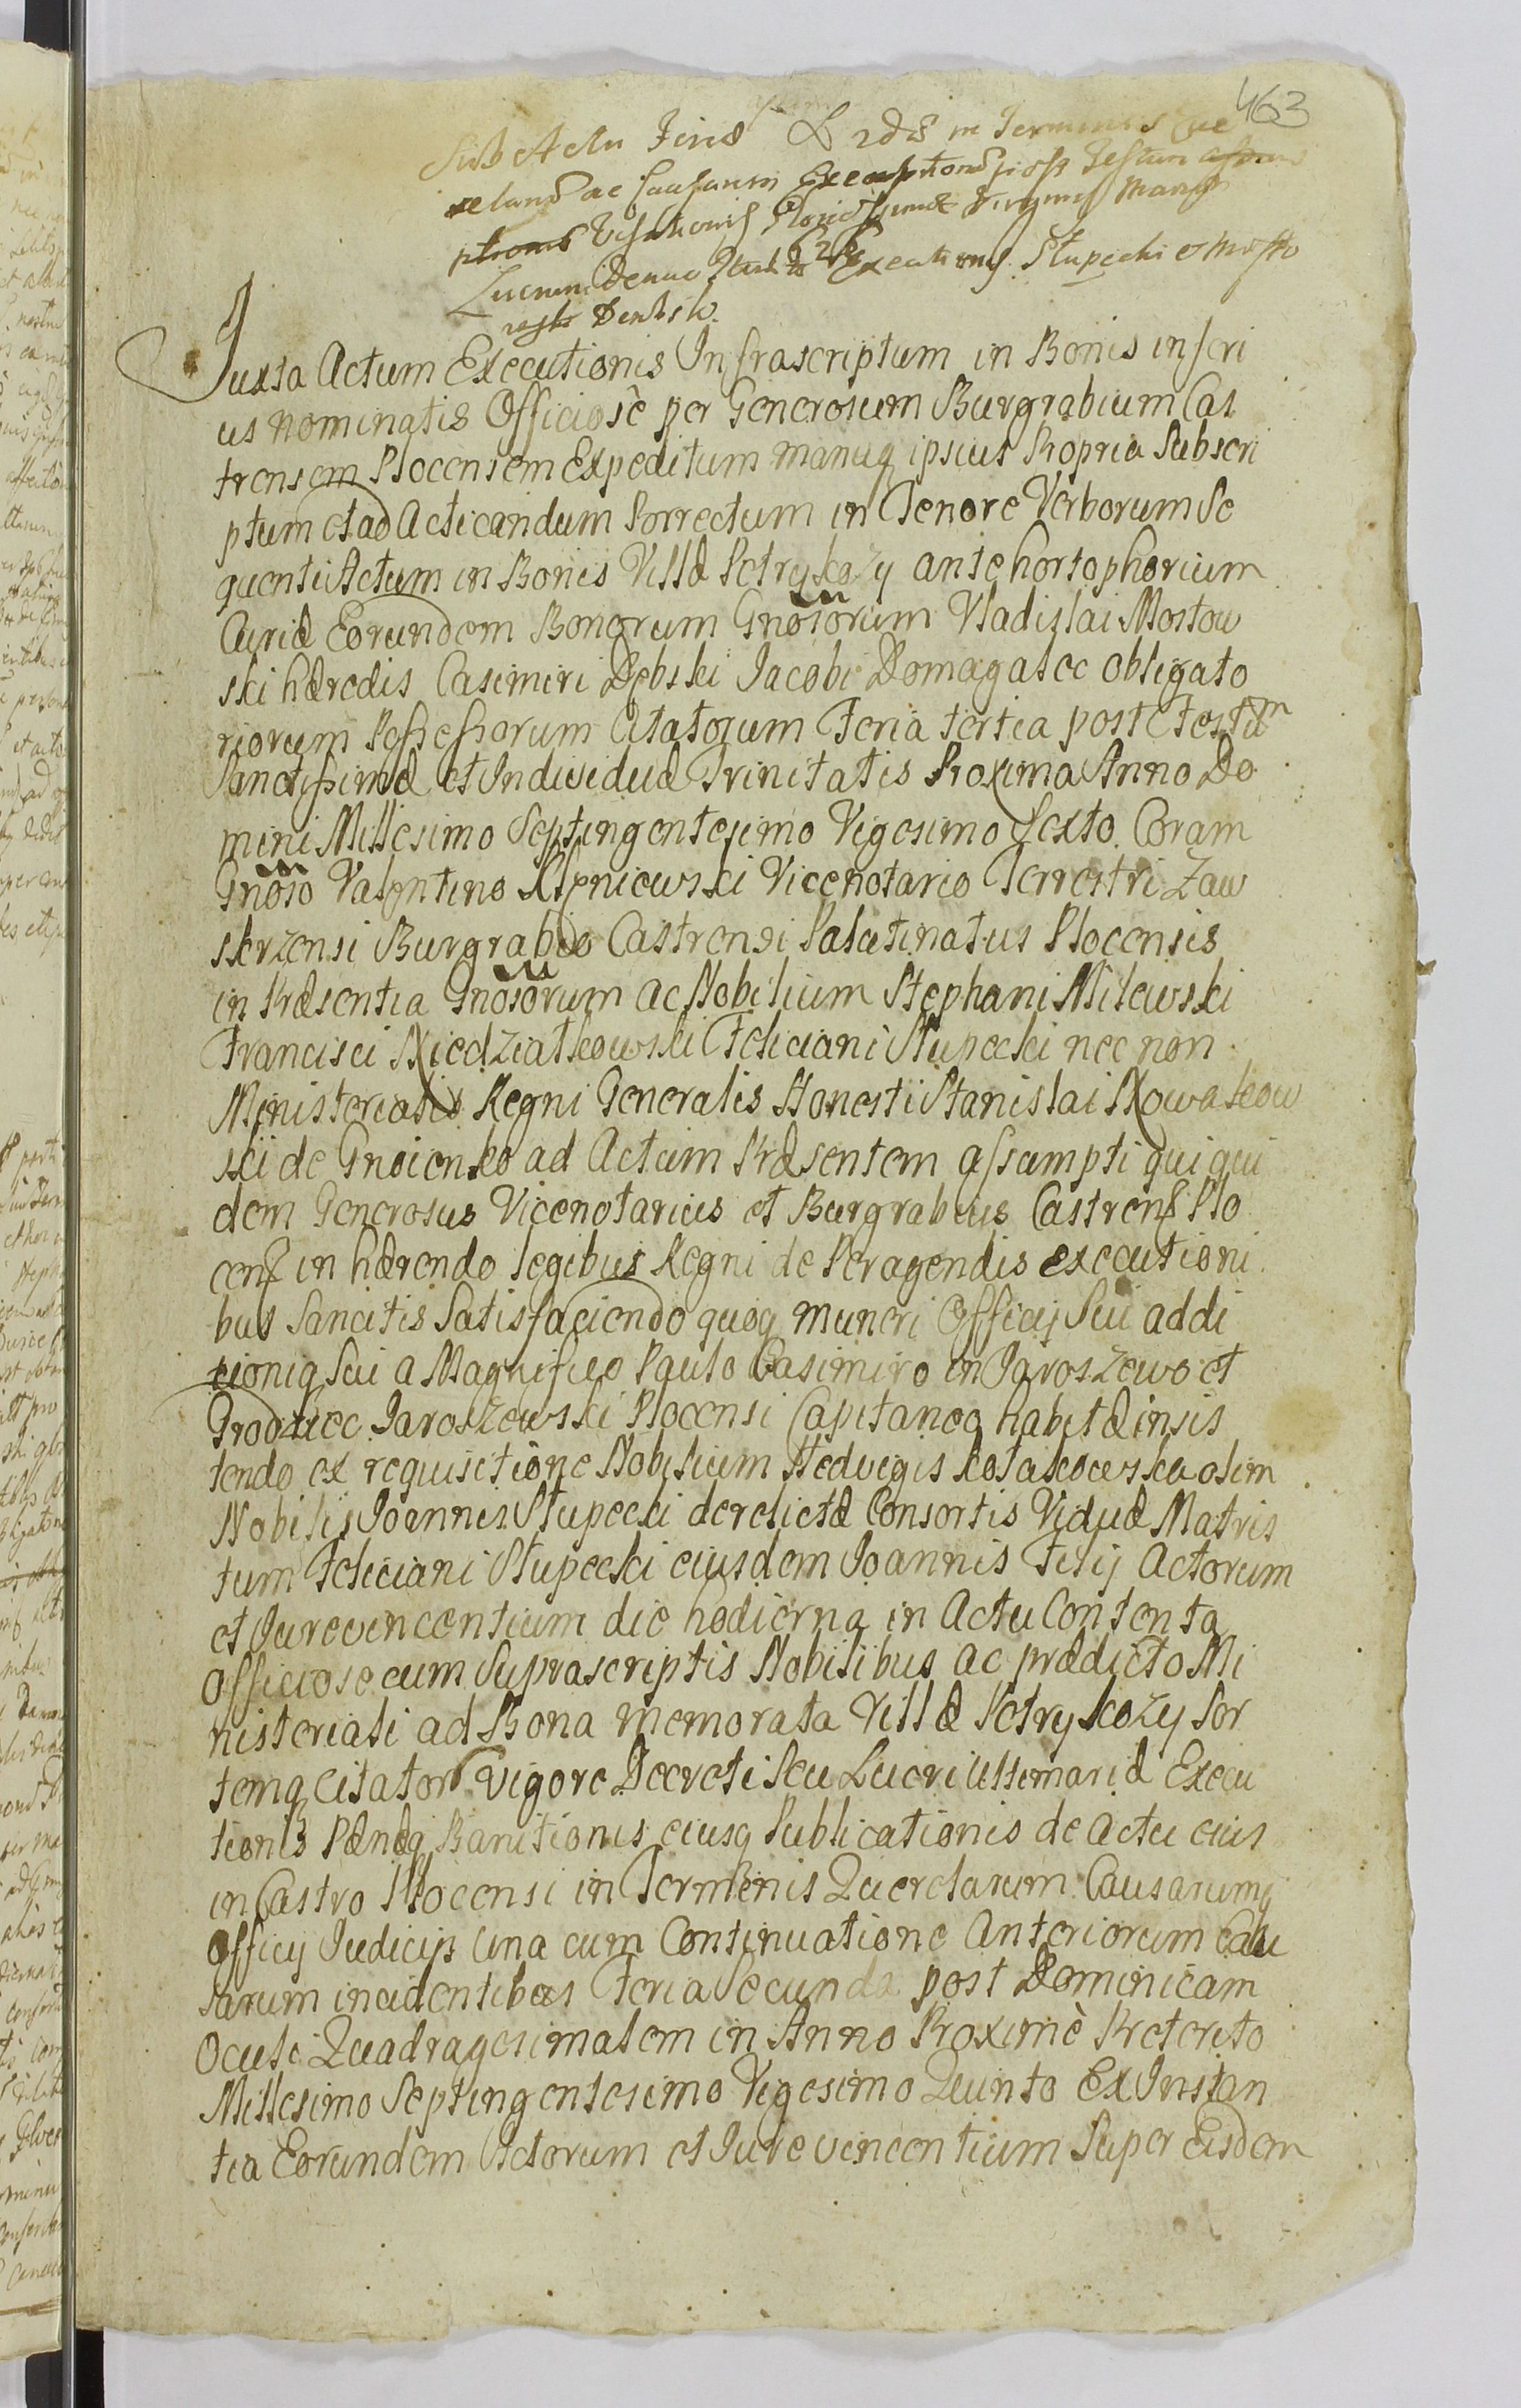 463
Sub Actu Feriæ in Terminis Que
relarum ac Causarum post Festum
Visitationis Gloriosissimæ Virginis Mariæ
Executionis Słupecki et Mosto
Juxta Actum Executionis Infrascriptum in Bonis inferi
us nominatis Officiosè per Generosum Burgrabium Cas
trensem Plocensem Expeditum manuq ipsius Propria Subscri
ptum et ad Acticandum Porrectum in Tenore Verborum Se
quenti Actum in Bonis Villæ Petrykozy ante hortophorium
Curiæ Eorundem Bonorum Gnosorum Vladislai Mostow
ski hæredis Casimiri Dębski Iacobi Domagalec obligato
riorum Possessorum Citatorum Feria tertia post Festum
Sanctissimæ et Individuæ Trinitatis Proxima Anno Do
mini Millesimo Septingentesimo Vigesimo Sexto. Coram
Gnoso Valentino Rępniewski Vicenotario Terrestri Zaw
skrzensi Burgrabio Castrensi Palatinatus Plocensis
in Præsentia Gnosorum ac Nobilium Stephani Milewski
Francisci Niedziałkowski Feliciani Słupecki nec non
Ministerialis Regni Generalis Honesti Stanislai Nowakow
ski de Gnoienko ad Actum Præsentem assumpti qui qui
dem Generosus Vicenotarius et Burgrabius Castrens Plo
cens in hærendo legibus Regni de Peragendis executioni
bus Sancitis Satisfaciendo quoq muneri Officij Sui addi
cioniq Sui a Magnifico Paulo Casimiro in Jaroszewo et
Grodziec Jaroszewski Plocensi Capitaneo habitæ insis
tendo ex requisitione Nobilium Hedvigis Kołakowska olim
Nobilis Joannis Słupecki derelictæ Consortis Viduæ Matris
tum Feliciani Słupecki eiusdem Joannis Filij Actorum
et Jurevincentium die hodierna in Actu Contenta
Officiose cum Suprascriptis Nobilibus ac prædicto Mi
nisteriali ad Bona memorata Villæ Petrykozy Sor
temq Citator Vigore Decreti Seu Lucri Ultimariæ Execu
tionis Pænæq Banitionis eiusq Publicationis de Actu eius
in Castro Plocensi in Terminis Querelarum Causarumq
Officij Iudicij Una cum Continuatione Anteriorum Cau
sarum incidentibus Feria Secunda post Dominicam
Oculi Quadragesimalem in Anno Proximè Preterito
Millesimo Septingentesimo Vigesimo Quinto Ex Instan
tia Eorundem Actorum et Jurevincentium Super Eisdem